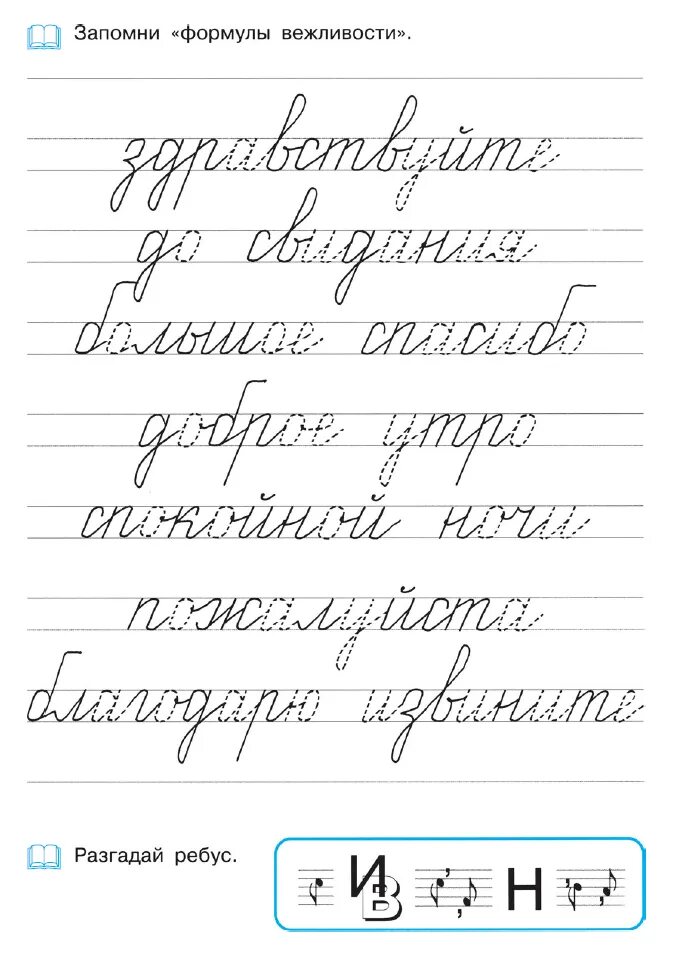 Запомни «формулы вежливости».
здравствуйте
до свидания
большое спасибо
доброе утро
спокойной ночи
пожалуйста
благодарю извините
Разгадай ребус.
И В Н